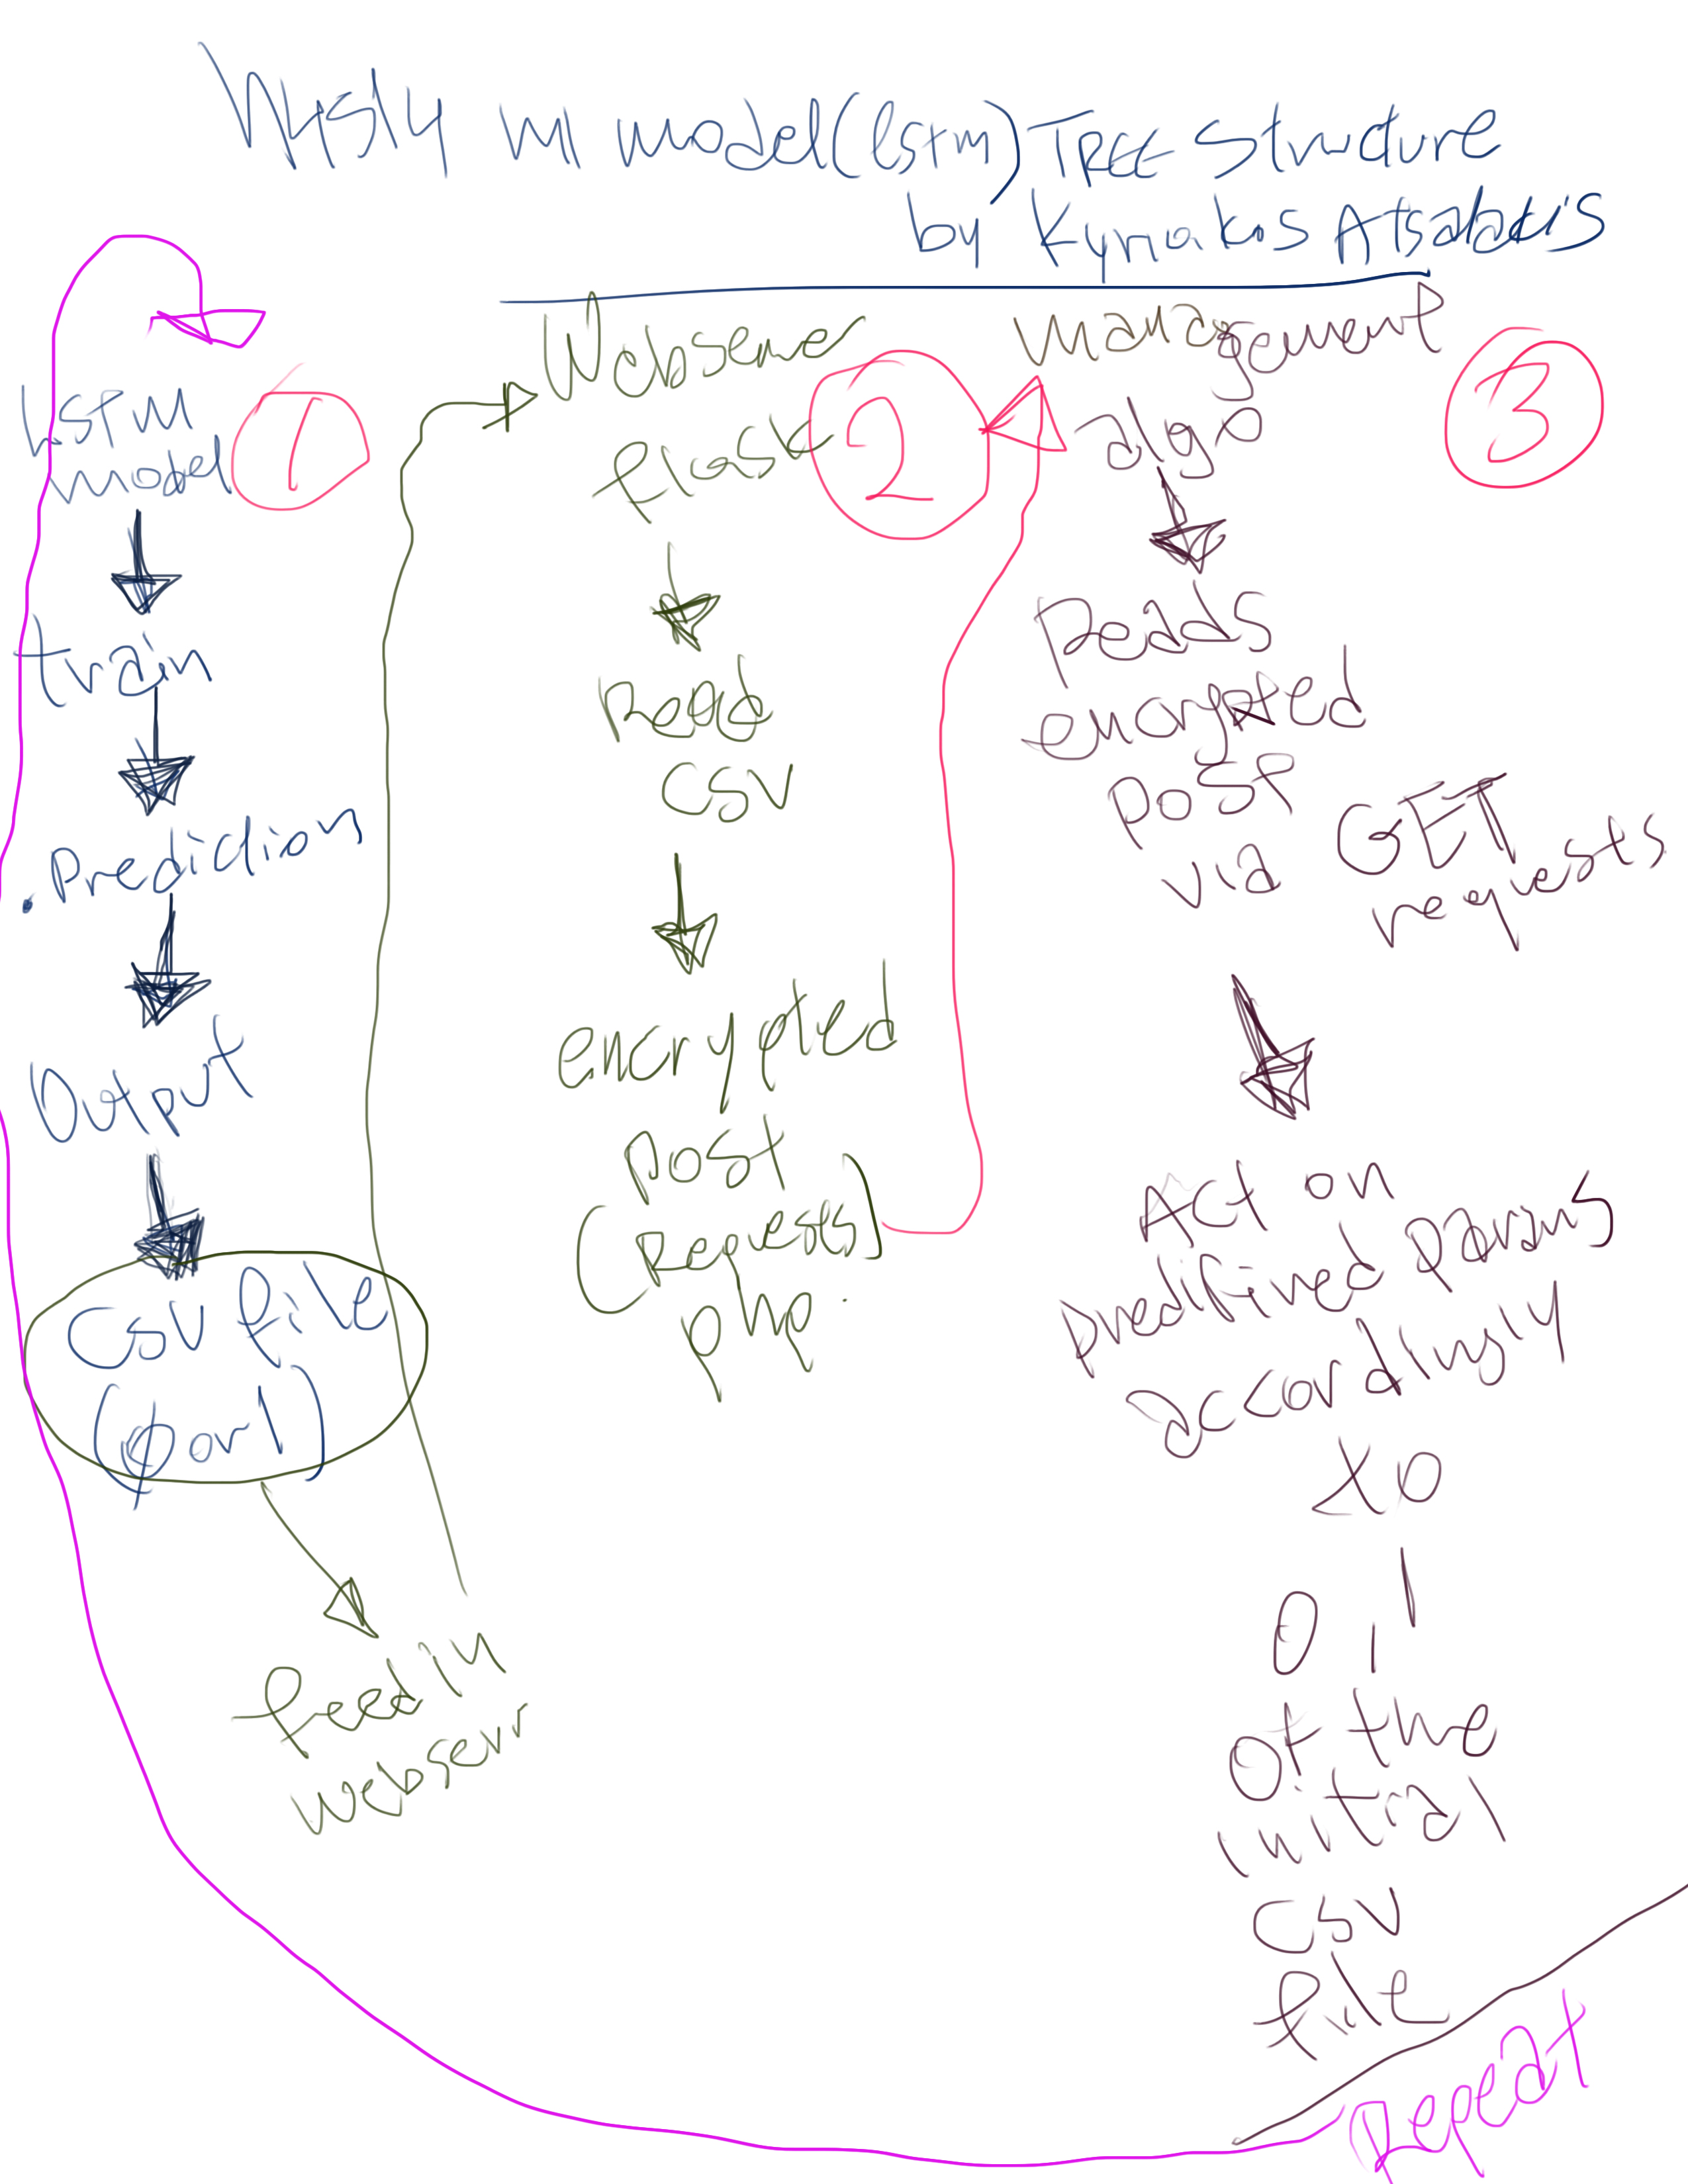 ml model (lstm) TREE structure
by Kyriakos Atsalakis
LSTM
model
1
train
Prediction
Output
CSV file
(φ or 1)
feed in
webserv
Webserver
flask
2
Read
CSV
encrypted
post
(Requests)
php.
management
algo
3
Reads
encrypted
post
via GET
requests
Act on
predifined params
accordingly
to
0, 1
of the
initial
CSV
file
Repeat